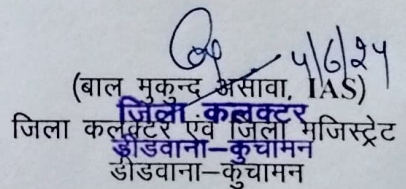 4/6/24
(बाल मुकुन्द असावा, IAS)
जिला कलक्टर
जिला कलक्टर एवं जिला मजिस्ट्रेट
डीडवाना-कुचामन
डीडवाना-कुचामन